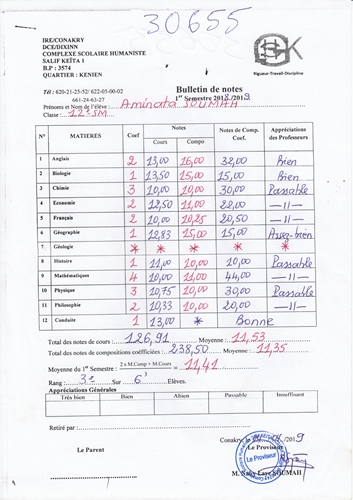 30655
IRE/CONAKRY
DCE/DIXINN
COMPLEXE SCOLAIRE HUMANISTE
SALIF KEÏTA 1
B.P : 3574
QUARTIER : KENIEN
Rigueur-Travail-Discipline
Tél : 620-21-25-52/ 622-05-00-02
661-24-63-27
Bulletin de notes
1er Semestre 2018/2019
Prénoms et Nom de l'élève : Aminata SOUMAH
Classe : 12e SM
N° MATIERES Coef Notes Notes de Comp. Coef. Appréciations des Professeurs
Cours Compo
1 Anglais 2 13,00 16,00 32,00 Bien
2 Biologie 1 13,50 15,00 15,00 Bien
3 Chimie 3 10,00 10,00 30,00 Passable
4 Economie 2 12,50 11,00 22,00 —//—
5 Français 2 10,00 10,25 20,50 —//—
6 Géographie 1 12,83 15,00 15,00 Assez-bien
7 Géologie * * * * *
8 Histoire 1 11,00 10,00 10,00 Passable
9 Mathématiques 4 10,00 11,00 44,00 —//—
10 Physique 3 10,75 10,00 30,00 Passable
11 Philosophie 2 10,33 10,00 20,00 —//—
12 Conduite 1 13,00 * Bonne
Total des notes de cours : 126,91 Moyenne : 11,53
Total des notes de compositions coéfficiées : 238,50 Moyenne : 11,35
Moyenne du 1er Semestre : 2 x M.Comp + M.Cours = 11,41
3
Rang : 3e Sur 6 Elèves.
Appréciations Générales
Très bien Bien Abien Passable Insuffisant
Retiré par :
Conakry, le
Le Parent Le Proviseur
Le Proviseur
SOUMAH